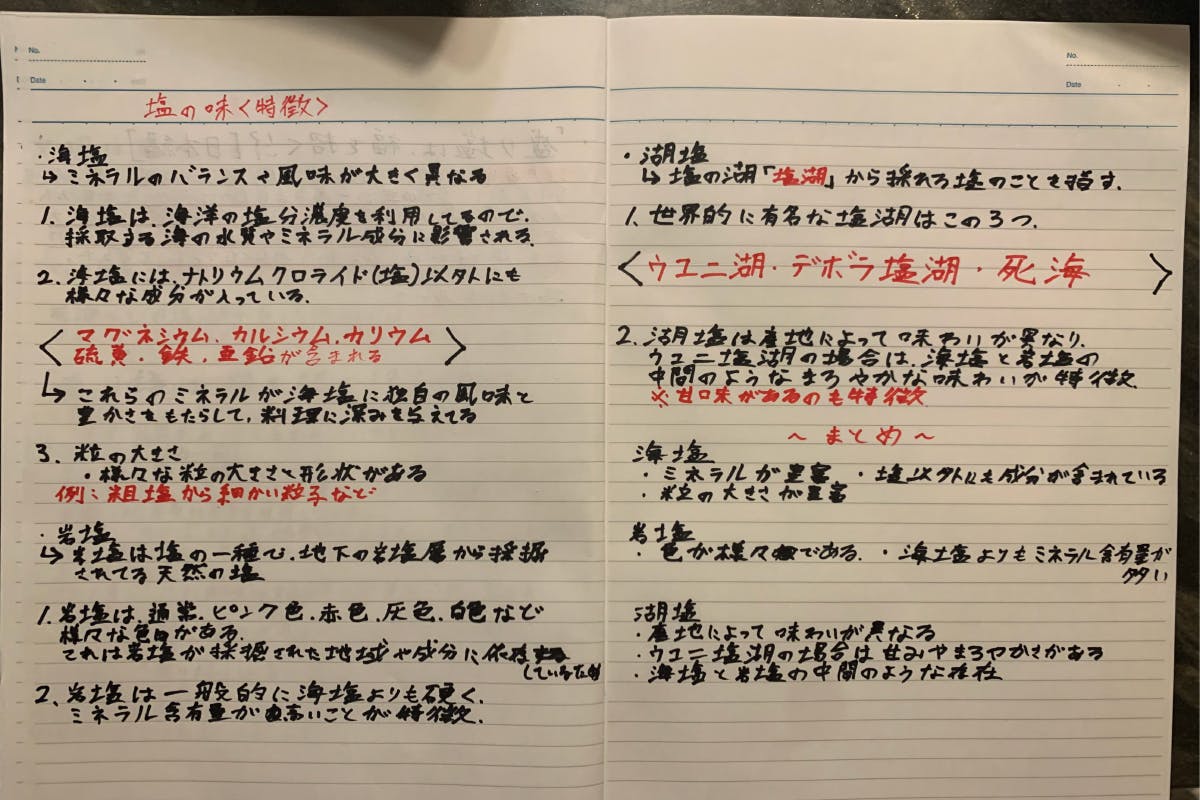 No.
Date
塩の味<特徴>
・海塩
↳ミネラルのバランスや風味が大きく異なる
1. 海塩は、海洋の塩分濃度を利用してるので、
採取する海の水質やミネラル成分に影響される。
2. 海塩には、ナトリウムクロライド(塩)以外にも
様々な成分が入っている。
<マグネシウム、カルシウム、カリウム
硫黄、鉄、亜鉛が含まれる>
↳これらのミネラルが海塩に独自の風味と
豊かさをもたらして、料理に深みを与えてる
3. 粒の大きさ
・様々な粒の大きさと形状がある
例：粗塩から細かい粒子など
・岩塩
↳岩塩は塩の一種で、地下の岩塩層から採掘
されてる天然の塩
1. 岩塩は、通常、ピンク色、赤色、灰色、白色など
様々な色がある。
これは岩塩が採掘された地域や成分に依存
しているため
2. 岩塩は一般的に海塩よりも硬く、
ミネラル含有量が高いことが特徴。
No.
Date
・湖塩
↳塩の湖「塩湖」から採れる塩のことを指す。
1. 世界的に有名な塩湖はこの3つ。
<ウユニ湖・デボラ塩湖・死海>
2. 湖塩は産地によって味わいが異なり、
ウユニ塩湖の場合は、海塩と岩塩の
中間のようなまろやかな味わいが特徴
※甘味があるのも特徴
〜まとめ〜
海塩
・ミネラルが豊富 ・塩以外にも成分が含まれている
・粒の大きさが豊富
岩塩
・色が様々である。 ・海塩よりもミネラル含有量が
多い
湖塩
・産地によって味わいが異なる
・ウユニ塩湖の場合は甘みやまろやかさがある
・海塩と岩塩の中間のような存在